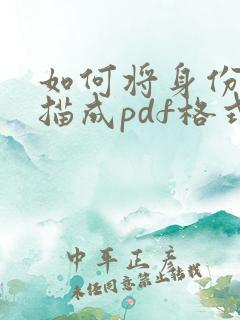 如何将身份
描成pdf格式
中平正彦
未经同意禁止转载